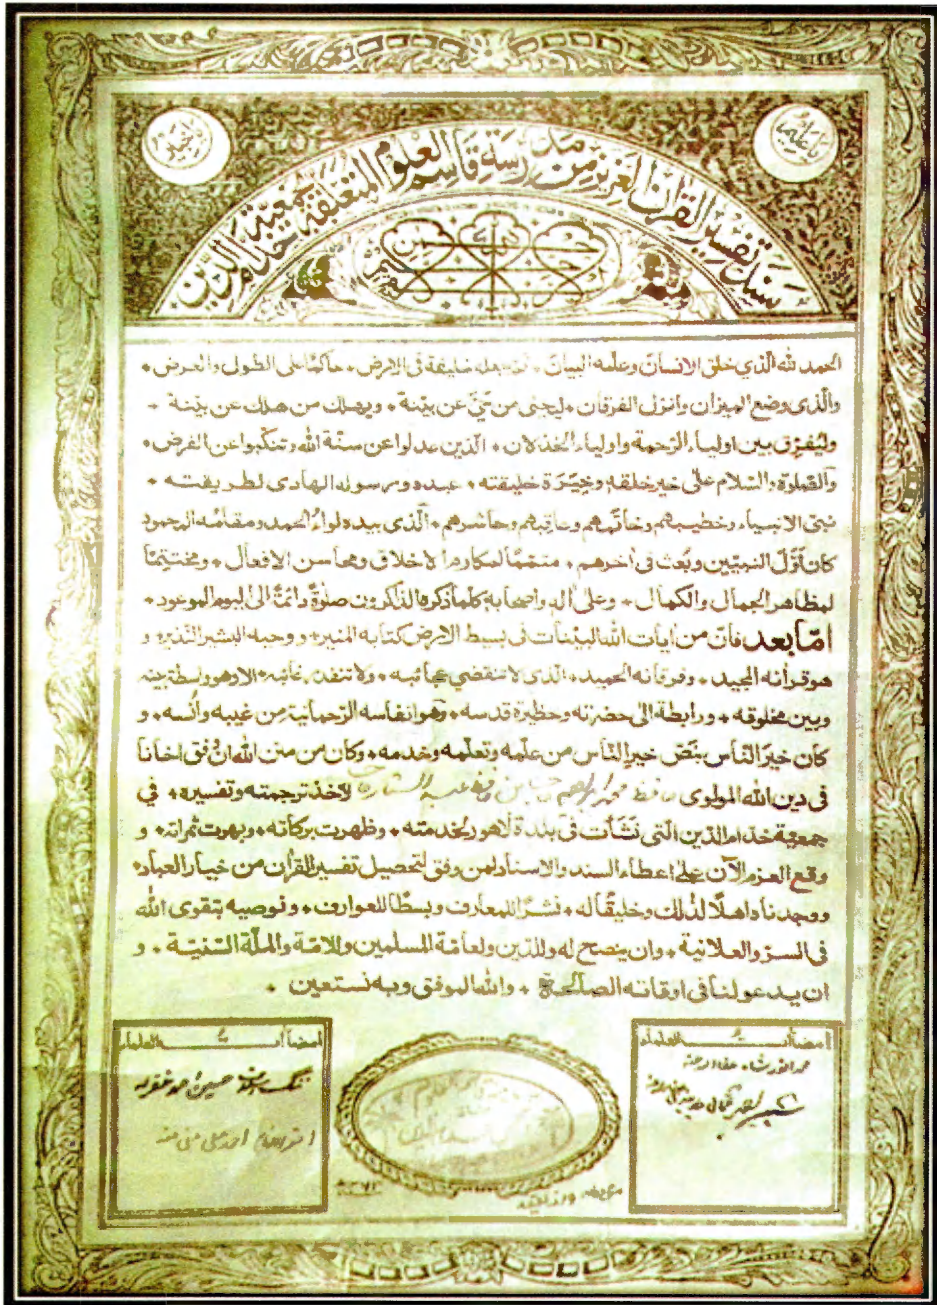 يا عليم
سند تفسير القرآن العزيز من مدرسة قاسم العلوم المتعلقة بجمعية خدام الدين
الحمد لله الذي خلق الانسان وعلمه البيان ٠ ثم جعله خليفة فى الارض ٠ حاكمًا على الطول والعرض ٠
والذى وضع الميزان وانزل الفرقان ٠ ليحيى من حيّ عن بيّنة ٠ ويهلك من هلك عن بيّنة ٠
وليُفرّق بين اولياء الرحمة واولياء الخذلان ٠ الذين عدلوا عن سنّة الله وتنكّبوا عن الفرض ٠
والصّلوة والسّلام على خير خلقه وخِيَرة خليقته ٠ عبده ورسوله الهادى لطريقته ٠
نبىّ الانبياء وخطيبهم وخاتمهم وعاقبهم وحاشرهم ٠ الّذى بيده لواءُ الحمد ومقامُه المحمود
كان اوّل النبيّين وبُعث فى اٰخرهم ٠ متممًا لمكارم الاخلاق ومحاسن الافعال ٠ ومختتمًا
لمظاهر الجمال والكمال ٠ وعلى اٰله واصحابه كلما ذكره الذاكرون صلوةً دائمةً الى اليوم الموعود ٠
امّا بعد فانّ من اٰيات الله البيّنات فى بسط الارض كتابه المنير ٠ ووحيه البشير النّذير ٠ و
هو قراٰنه المجيد ٠ وفرقانه الحميد ٠ الّذى لا تنقضي عجائبه ٠ ولا تنفد رغائبه ٠ الا وهو واسطة بينه
وبين مخلوقه ٠ ورابطة الى حضرته وحظيرة قدسه ٠ وهو انفاسه الرّحمانية من غيبه وأنسه ٠ و
كان خيرُ النّاس بنصّ خيرِ النّاس من علّمه وتعلّمه وخدمه ٠ وكان من منن الله ان وُفّق اخانا
فى دين الله المولوى حافظ محمد ابراهيم لاخذ ترجمته وتفسيره ٠ في
جمعية خدام الدين التى نَشَأت فى بلدة لاهور لخدمته ٠ وظهرت بركاته ٠ وبهرت ثمراته ٠ و
وقع العزم الاٰن على اعطاء السند والاسناد لمن وفق لتحصيل تفسير القراٰن من خيار العباد ٠
ووجدناه اهلًا لذلك وخليقًا له ٠ نشرًا للمعارف وبسطًا للعوارف ٠ ونوصيه بتقوى الله
فى السرّ والعلانية ٠ وان ينصح له وللدّين ولعامّة المسلمين وللامّة والملّة السّنيّة ٠ و
ان يدعو لنا فى اوقاته الصالحة ٠ والله الموفق وبه نستعين ٠
امضاآت العلماء
محمد انور شاه عفا الله عنه
امضاآت العلماء
حسين احمد غفرله
احمد على عفى عنه